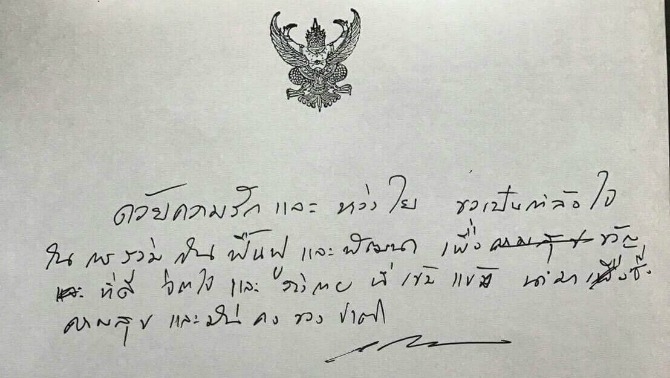 ด้วยความรัก และ ห่วงใย ขอเป็นกำลังใจ
ใน การร่วม กัน ฟื้นฟู และ พัฒนา เพื่อ ความสุข ขวัญ
และ ที่ดี จิตใจ และ ร่างกาย ที่ เข้ม แข็ง นำมา ซึ่ง
ความสุข และ มั่น คง ของ ชาติ